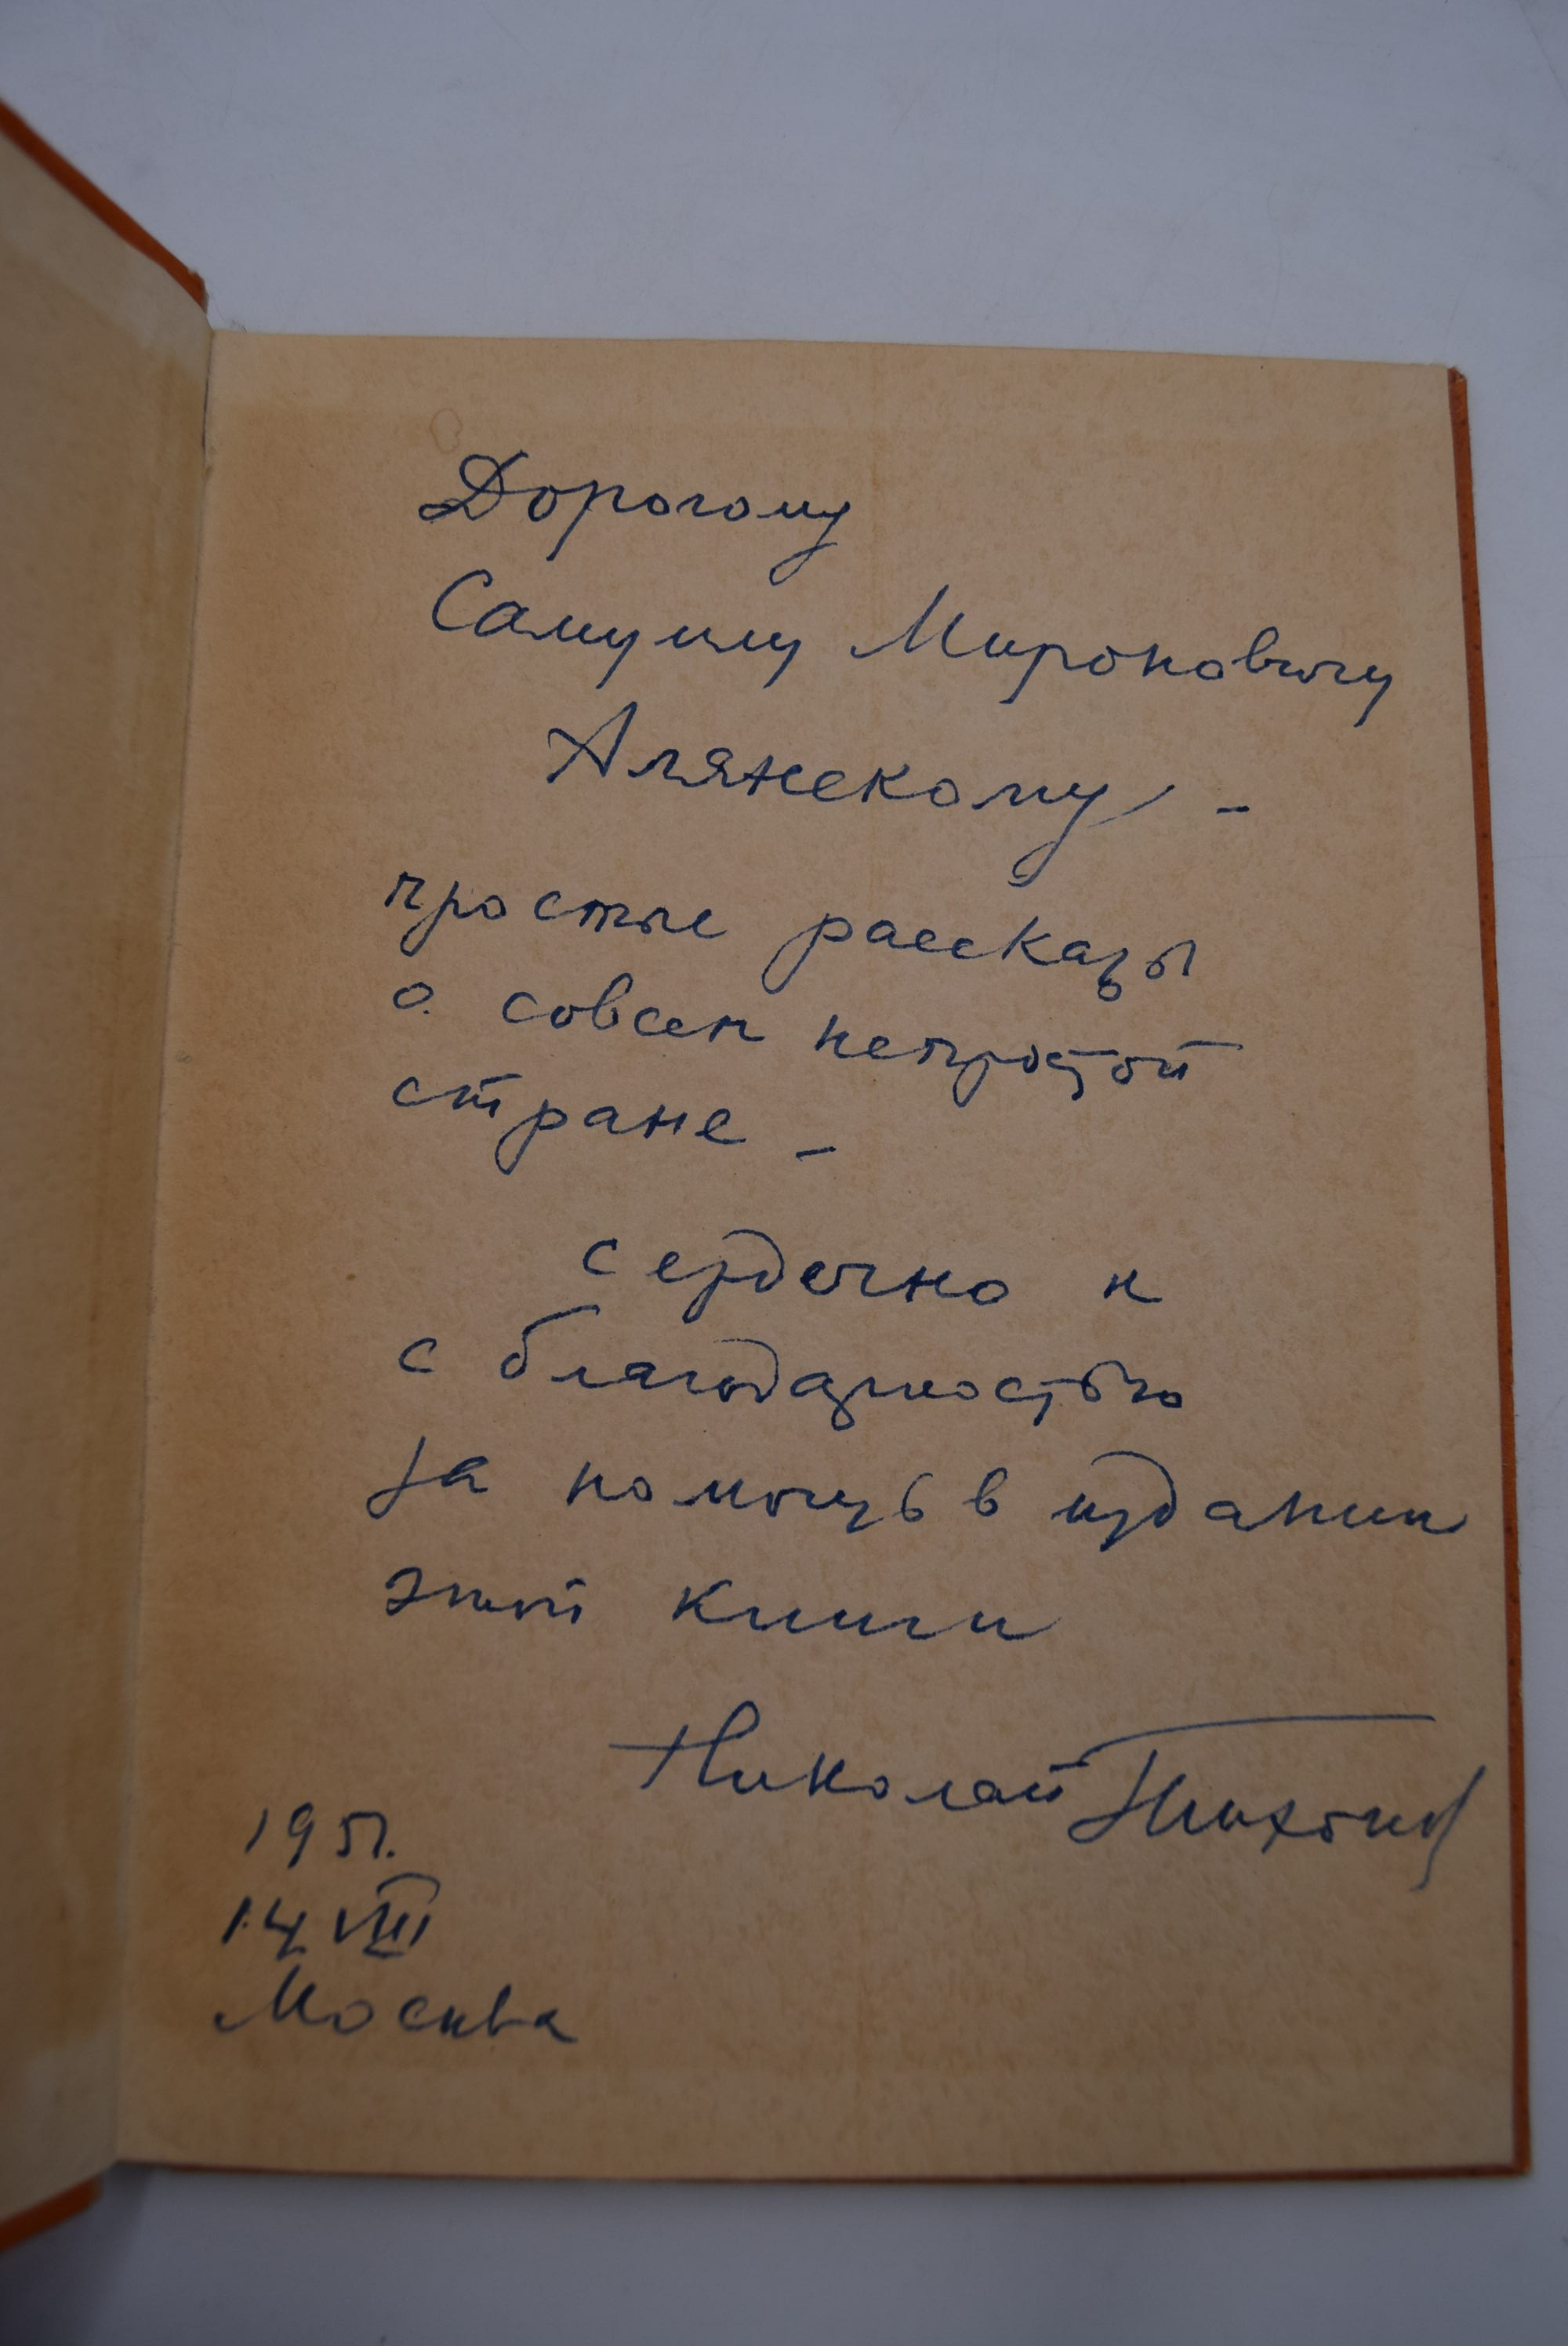 Дорогому
Самуилу Мироновичу
Алянскому, –
простые рассказы
о совсем непростой
стране –
сердечно и
с благодарностью
за помощь в издании
этой книги
Николай Тихонов
1951.
14 VIII
Москва